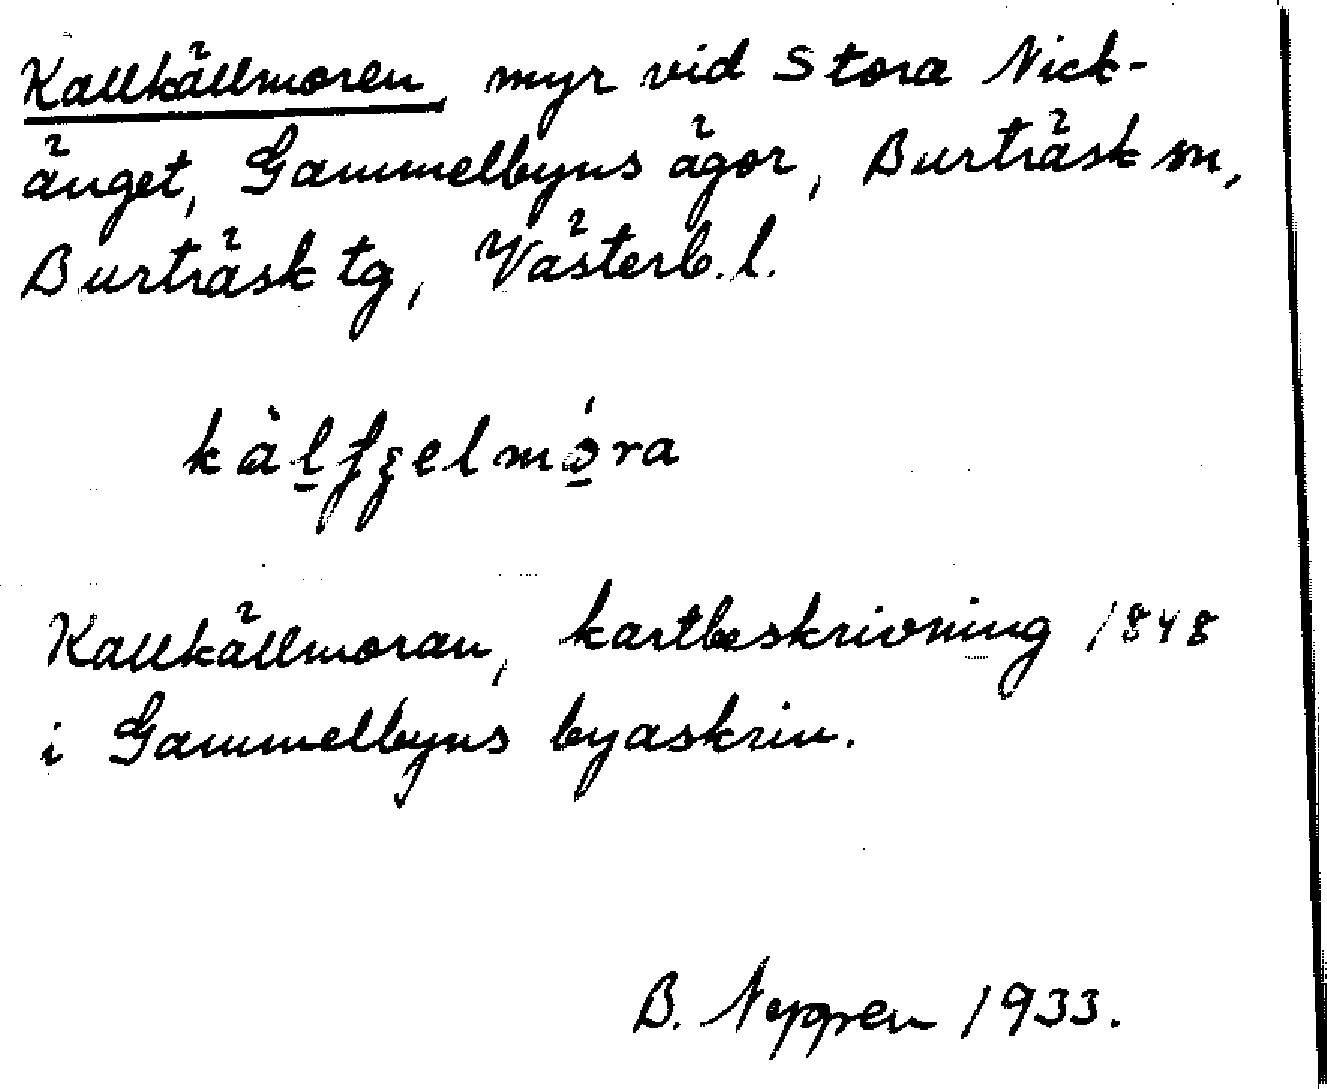 Kallkällmoren, myr vid Stora Nick-
änget, Gammelbyns ägor, Burträsk sn,
Burträsk tg, Västerb. l.
Kallkällmoran, kartbeskrivning 1848
i Gammelbyns byaskrin.
B. 1933.